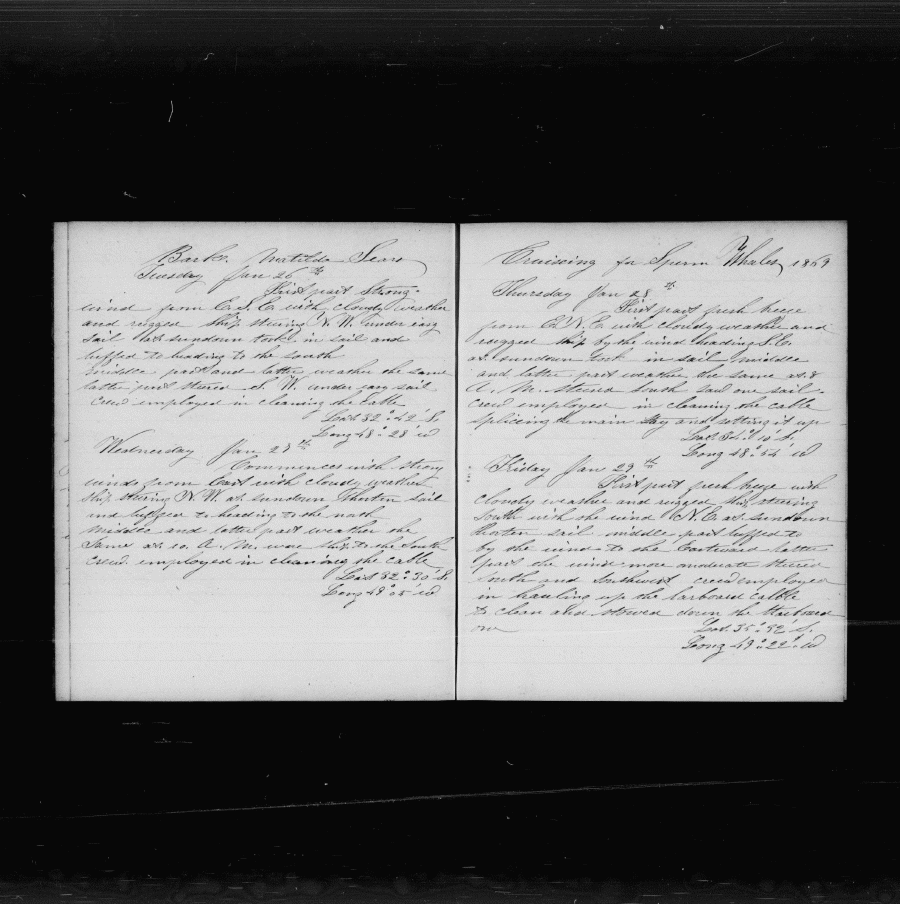 Bark Matilda Sears
Tuesday Jan 26th
First part strong
wind from E.S.E with cloudy weather
and rugged ship steering N.W. under easy
sail at sundown took in sail and
luffed to heading to the south
middle part and latter weather the same
latter part steered S.W. under easy sail
crew employed in cleaning the cable
Lat 32° 42' S.
Long 48° 28' W
Wednesday Jan 27th
Commences with strong
winds from East with cloudy weather
ship steering N.W. at sundown shorten sail
and luffed to heading to the north
middle and latter part weather the
same at 10 A.M. wore ship to the South
crew employed in cleaning the cable
Lat 32° 30' S.
Long 49° 05' W
Cruising for Sperm Whales 1869
Thursday Jan 28th
First part fresh breeze
from E.N.E with cloudy weather and
rugged ship by the wind heading S.E.
at sundown took in sail middle
and latter part weather the same at 8
A.M. steered South said one sail
crew employed in cleaning the cable
splicing the main stay and setting it up
Lat 34° 10' S.
Long 48° 54' W
Friday Jan 29th
First part fresh breeze with
cloudy weather and rugged ship steering
South with the wind N.E at sundown
shorten sail middle part luffed to
by the wind to the Eastward latter
part the wind more moderate steered
South and Southwest crew employed
in hauling up the larboard cable
to clean and stowed down the starboard
one
Lat 35° 32' S.
Long 49° 22' W